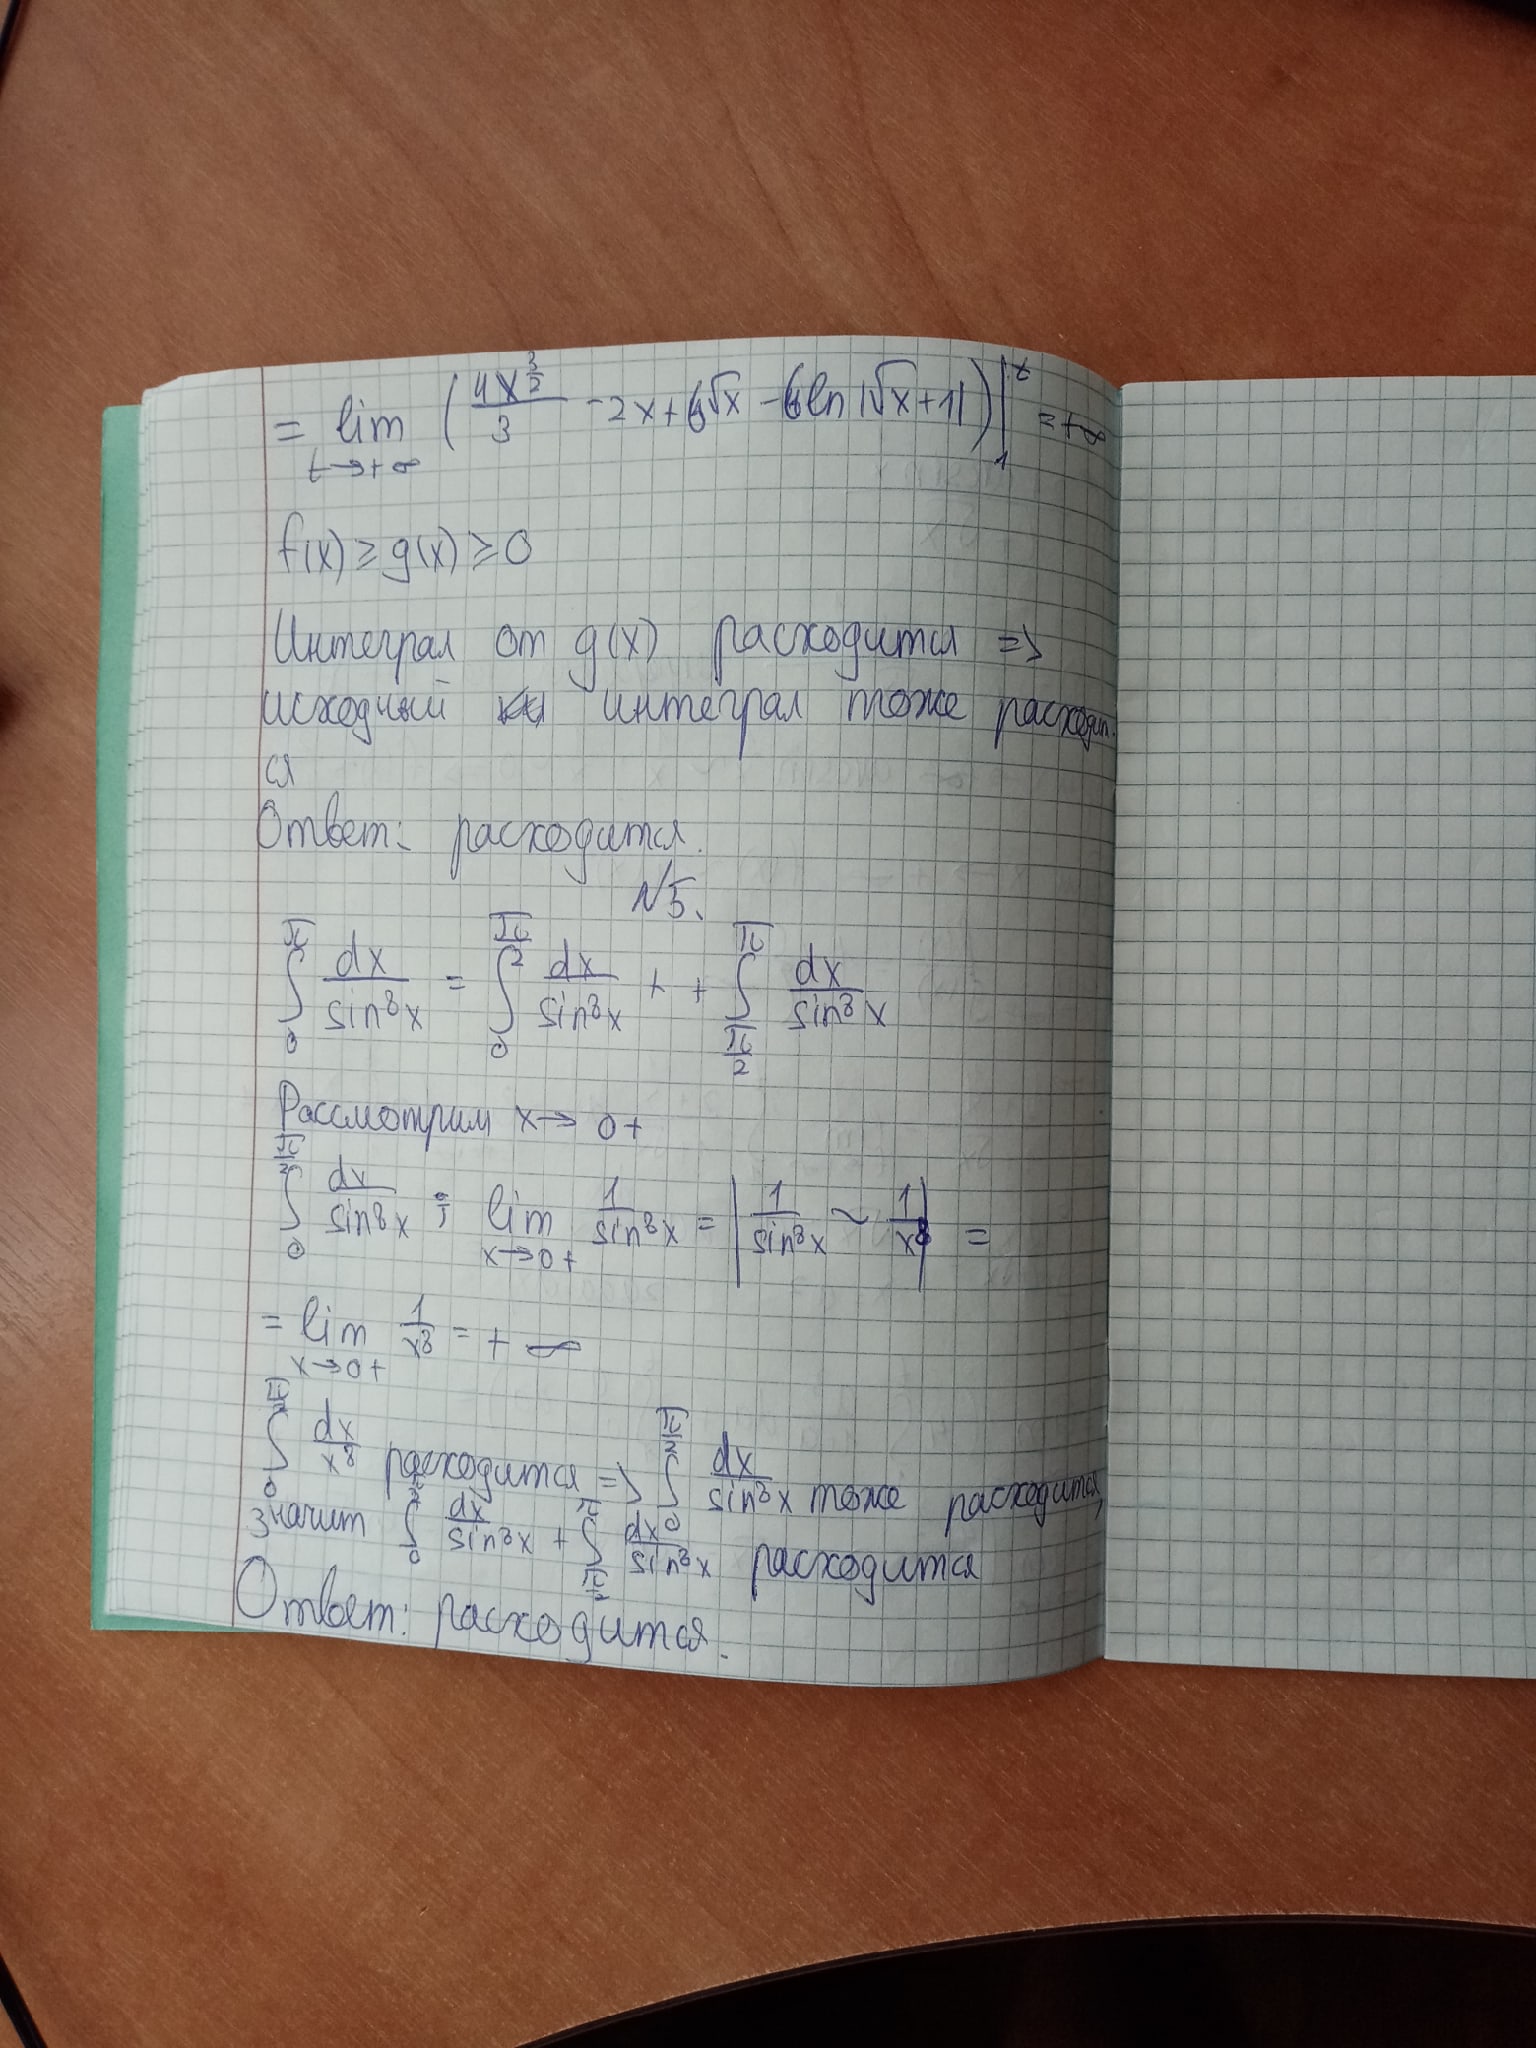 = lim t→+∞ (4x^(3/2)/3 - 2x + 6√x - 6ln|√x+1|)|₁ᵗ = +∞
f(x) ≥ g(x) ≥ 0
Интеграл от g(x) расходится =>
исходный интеграл тоже расходит
ся
Ответ: расходится.
№5.
∫₀^π dx/sin⁸x = ∫₀^(π/2) dx/sin⁸x + + ∫_(π/2)^π dx/sin⁸x
Рассмотрим x→0+
∫₀^(π/2) dx/sin⁸x ; lim x→0+ 1/sin⁸x = |1/sin⁸x ~ 1/x⁸| =
= lim x→0+ 1/x⁸ = +∞
∫₀^(π/2) dx/x⁸ расходится => ∫₀^(π/2) dx/sin⁸x тоже расходится,
значит ∫₀^(π/2) dx/sin⁸x + ∫_(π/2)^π dx/sin⁸x расходится
Ответ: расходится.